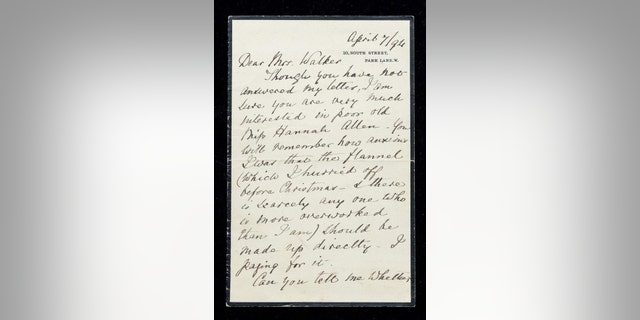 April 7/94
10, SOUTH STREET,
PARK LANE. W.
Dear Mrs. Walker
Though you have not
answered my letter, I am
sure you are very much
interested in poor old
Miss Hannah Allen - You
will remember how anxious
I was that the flannel
(which I hurried off
before Christmas - & there
is scarcely any one who
is more overworked
than I am) should be
made up directly - I
paying for it.
Can you tell me whether